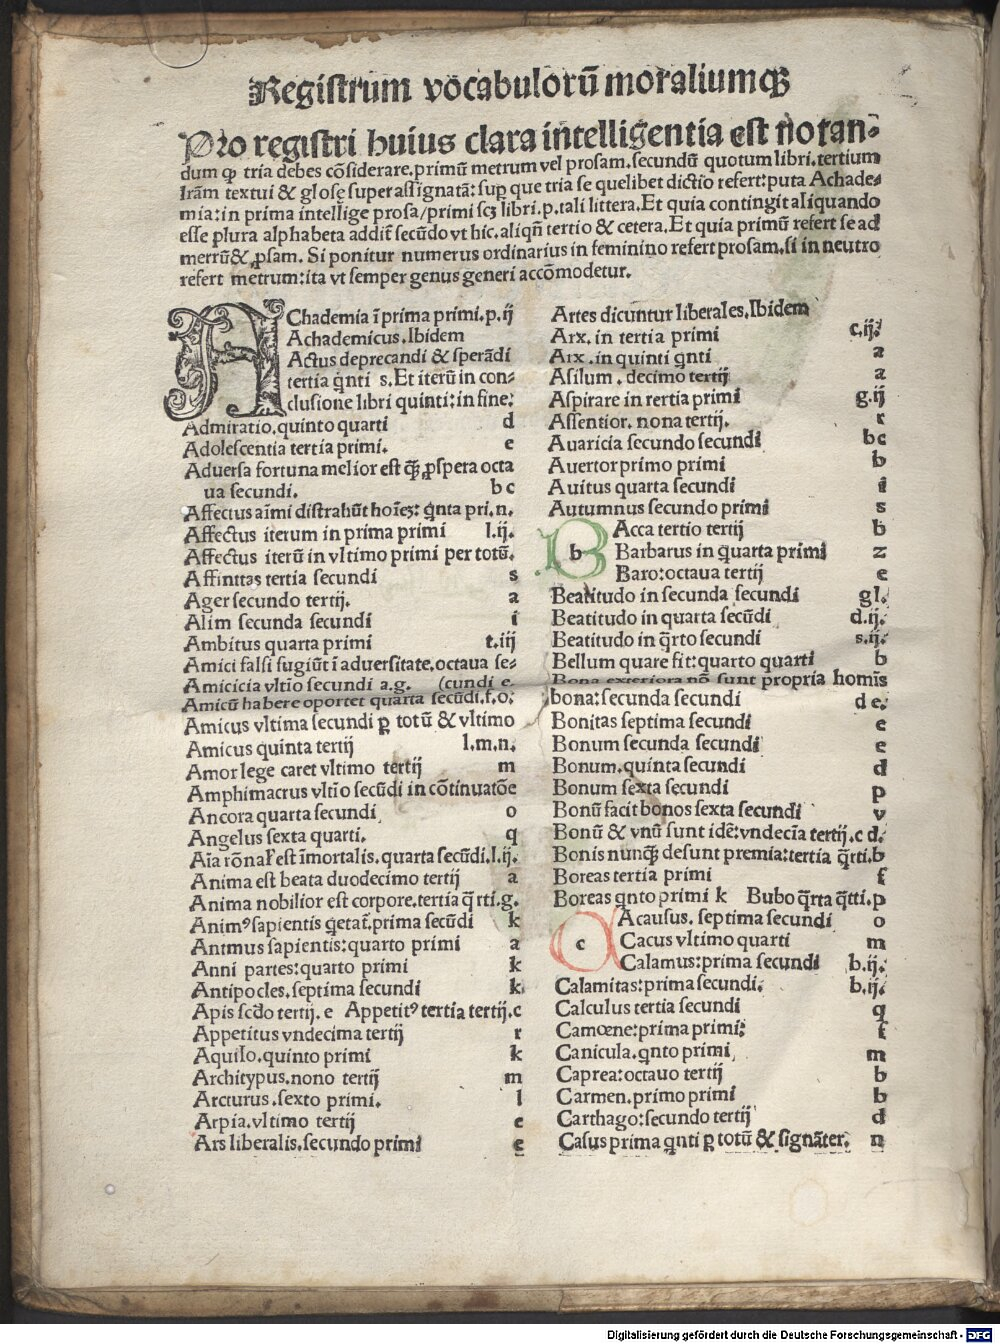 Registrum vocabulorū moraliumq̃
Pro registri huius clara intelligentia est notan-
dum ꝙ tria debes cōsiderare.primū metrum vel prosam.secundū quotum libri.tertium
lrām textui & glose superassignatā: sup̱ que tria se quelibet dictio refert:puta Achade-
mia:in prima intellige prosa/primi scꝫ libri.p.tali littera.Et quia contingit aliquando
esse plura alphabeta addit̄ secūdo vt hic.aliqñ tertio & cetera.Et quia primū refert se ad
metrū& ꝓsam. Si ponitur numerus ordinarius in feminino refert prosam.si in neutro
refert metrum:ita vt semper genus generi accōmodetur.
AChademia ī prima primi.p.ij
Achademicus.Ibidem
Actus deprecandi & sperādi
tertia q̇nti s.Et iterū in con-
clusione libri quinti:in fine:
Admiratio.quinto quarti d
Adolescentia tertia primi. e
Aduersa fortuna melior est q̃ꝫ ꝓspera octa
ua secundi. b c
Affectus aīmi distrahūt hoīeꝫ: q̇nta pri.n.
Affectus iterum in prima primi l.ij.
Affectus iterū in vltimo primi per totū.
Affinitas tertia secundi s
Ager secundo tertij. a
Alim secunda secundi i
Ambitus quarta primi t.iij
Amici falsi fugiūt ī aduersitate.octaua se-
Amicicia vltīo secundi a.g. (cundi e.
Amicū habere oportet quarta secūdi.f.o.
Amicus vltima secundi ꝑ totū & vltimo
Amicus quinta tertij l.m.n.
Amor lege caret vltimo tertij m
Amphimacrus vltīo secūdi in cōtinuatōe
Ancora quarta secundi o
Angelus sexta quarti. q
Aīa rōnaľ est īmortalis.quarta secūdi.l.ij.
Anima est beata duodecimo tertij a
Anima nobilior est corpore.tertia q̄rti.g.
Animꝰ sapientis q̇etať.prima secūdi k
Animus sapientis:quarto primi a
Anni partes:quarto primi k
Antipocles.septima secundi k
Apis scďo tertij. e Appetitꝰ tertia tertij.c
Appetitus vndecima tertij r
Aquilo.quinto primi k
Architypus.nono tertij m
Arcturus.sexto primi. l
Arpia.vltimo tertij e
Ars liberalis.secundo primi e
Artes dicuntur liberales.Ibidem
Arx. in tertia primi c.ij.
Arx .in quinti q̇nti a
Asilum . decimo tertij a
Aspirare in tertia primi g.ij
Assentior. nona tertij. r
Avaricia secundo secundi b c
Avertor primo primi b
Avitus quarta secundi i
Autumnus secundo primi s
b Acca tertio tertij b
Barbarus in q̇arta primi z
Baro:octaua tertij e
Beatitudo in secunda secundi g l.
Beatitudo in quarta secūdi d.ij.
Beatitudo in q̇rto secundi s.ij.
Bellum quare fit:quarto quarti b
Bona exteriora nō sunt propria homīs
bona:secunda secundi d e.
Bonitas septima secundi e
Bonum secunda secundi e
Bonum.quinta secundi d
Bonum sexta secundi p
Bonū facit bonos sexta secundi v
Bonū & vnū sunt idē:vndecīa tertij.c d.
Bonis nunq̃ꝫ desunt premia:tertia q̄rti.b
Boreas tertia primi f
Boreas q̇nto primi k Bubo q̄rta q̄rti.p
c Acausus. septima secundi o
Cacus vltimo quarti m
Calamus:prima secundi b.ij.
Calamitas:prima secundi. b.ij.
Calculus tertia secundi q
Camœne:prima primi: f
Canicula.q̇nto primi m
Caprea:octauo tertij b
Carmen.primo primi b
Carthago:secundo tertij d
Casus prima q̇nti ꝑ totū & signāter. n
Digitalisierung gefördert durch die Deutsche Forschungsgemeinschaft - DFG